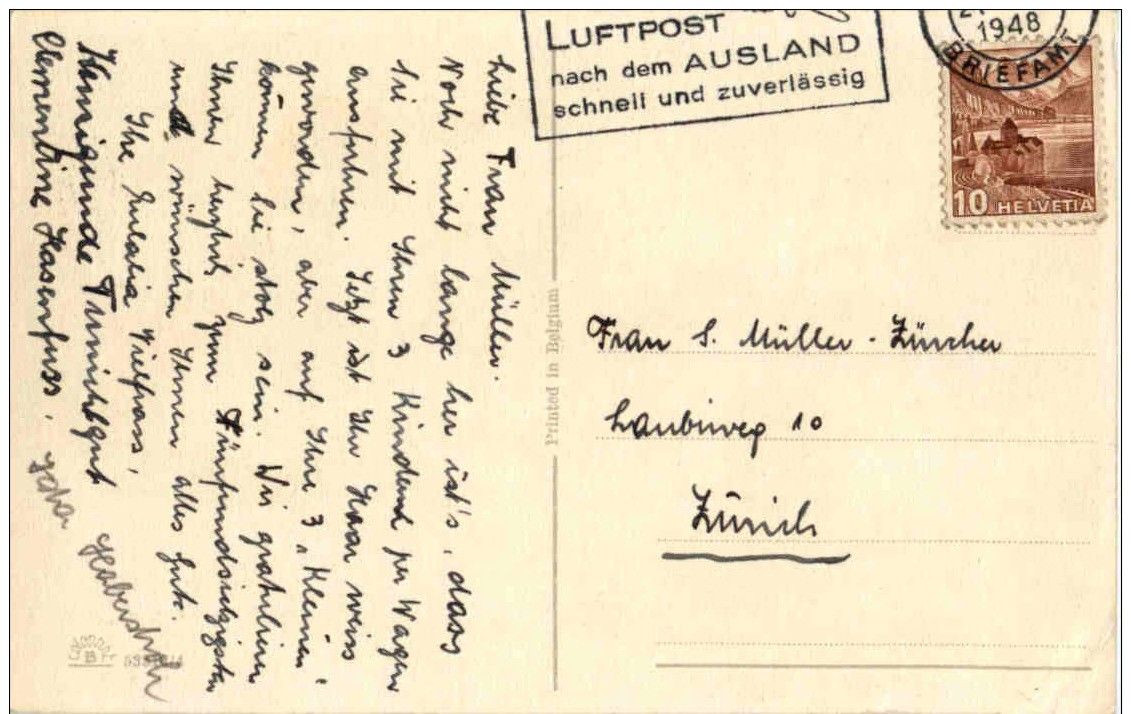 LUFTPOST
nach dem AUSLAND
schnell und zuverlässig
1948
BRIEFAMT
10 HELVETIA
Liebe Frau Müller.
Noch nicht lange her ist's, dass
Sie mit Ihren 3 Kindern per Wagen
ausfuhren. Jetzt ist Ihr Haar weiss
geworden, aber auf Ihre 3 "Kleinen"
können Sie stolz sein. Wir gratulieren
Ihnen herzlich zum Fünfundsiebzigsten
und wünschen Ihnen alles Gute.
Ihre Eulalia Vielfrass,
Kunigunde Tunichtgut
Clementine Hasenfuss.
Printed in Belgium
Frau S. Müller-Zürcher
Laubiweg 10
Zürich